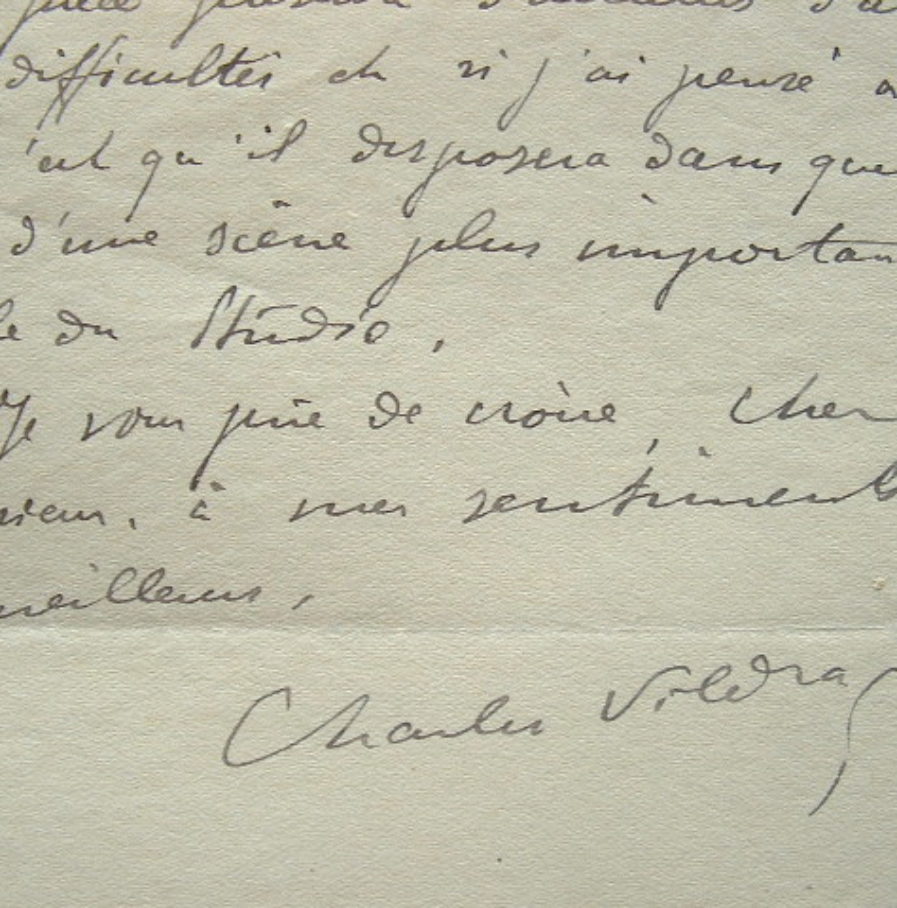 difficultés et si j'ai pensé a
'est qu'il disposera dans que
d'une scène plus importan
le du Studio.
Je vous prie de croire, cher
sieur, à mes sentiments
meilleurs,
Charles Vildrac